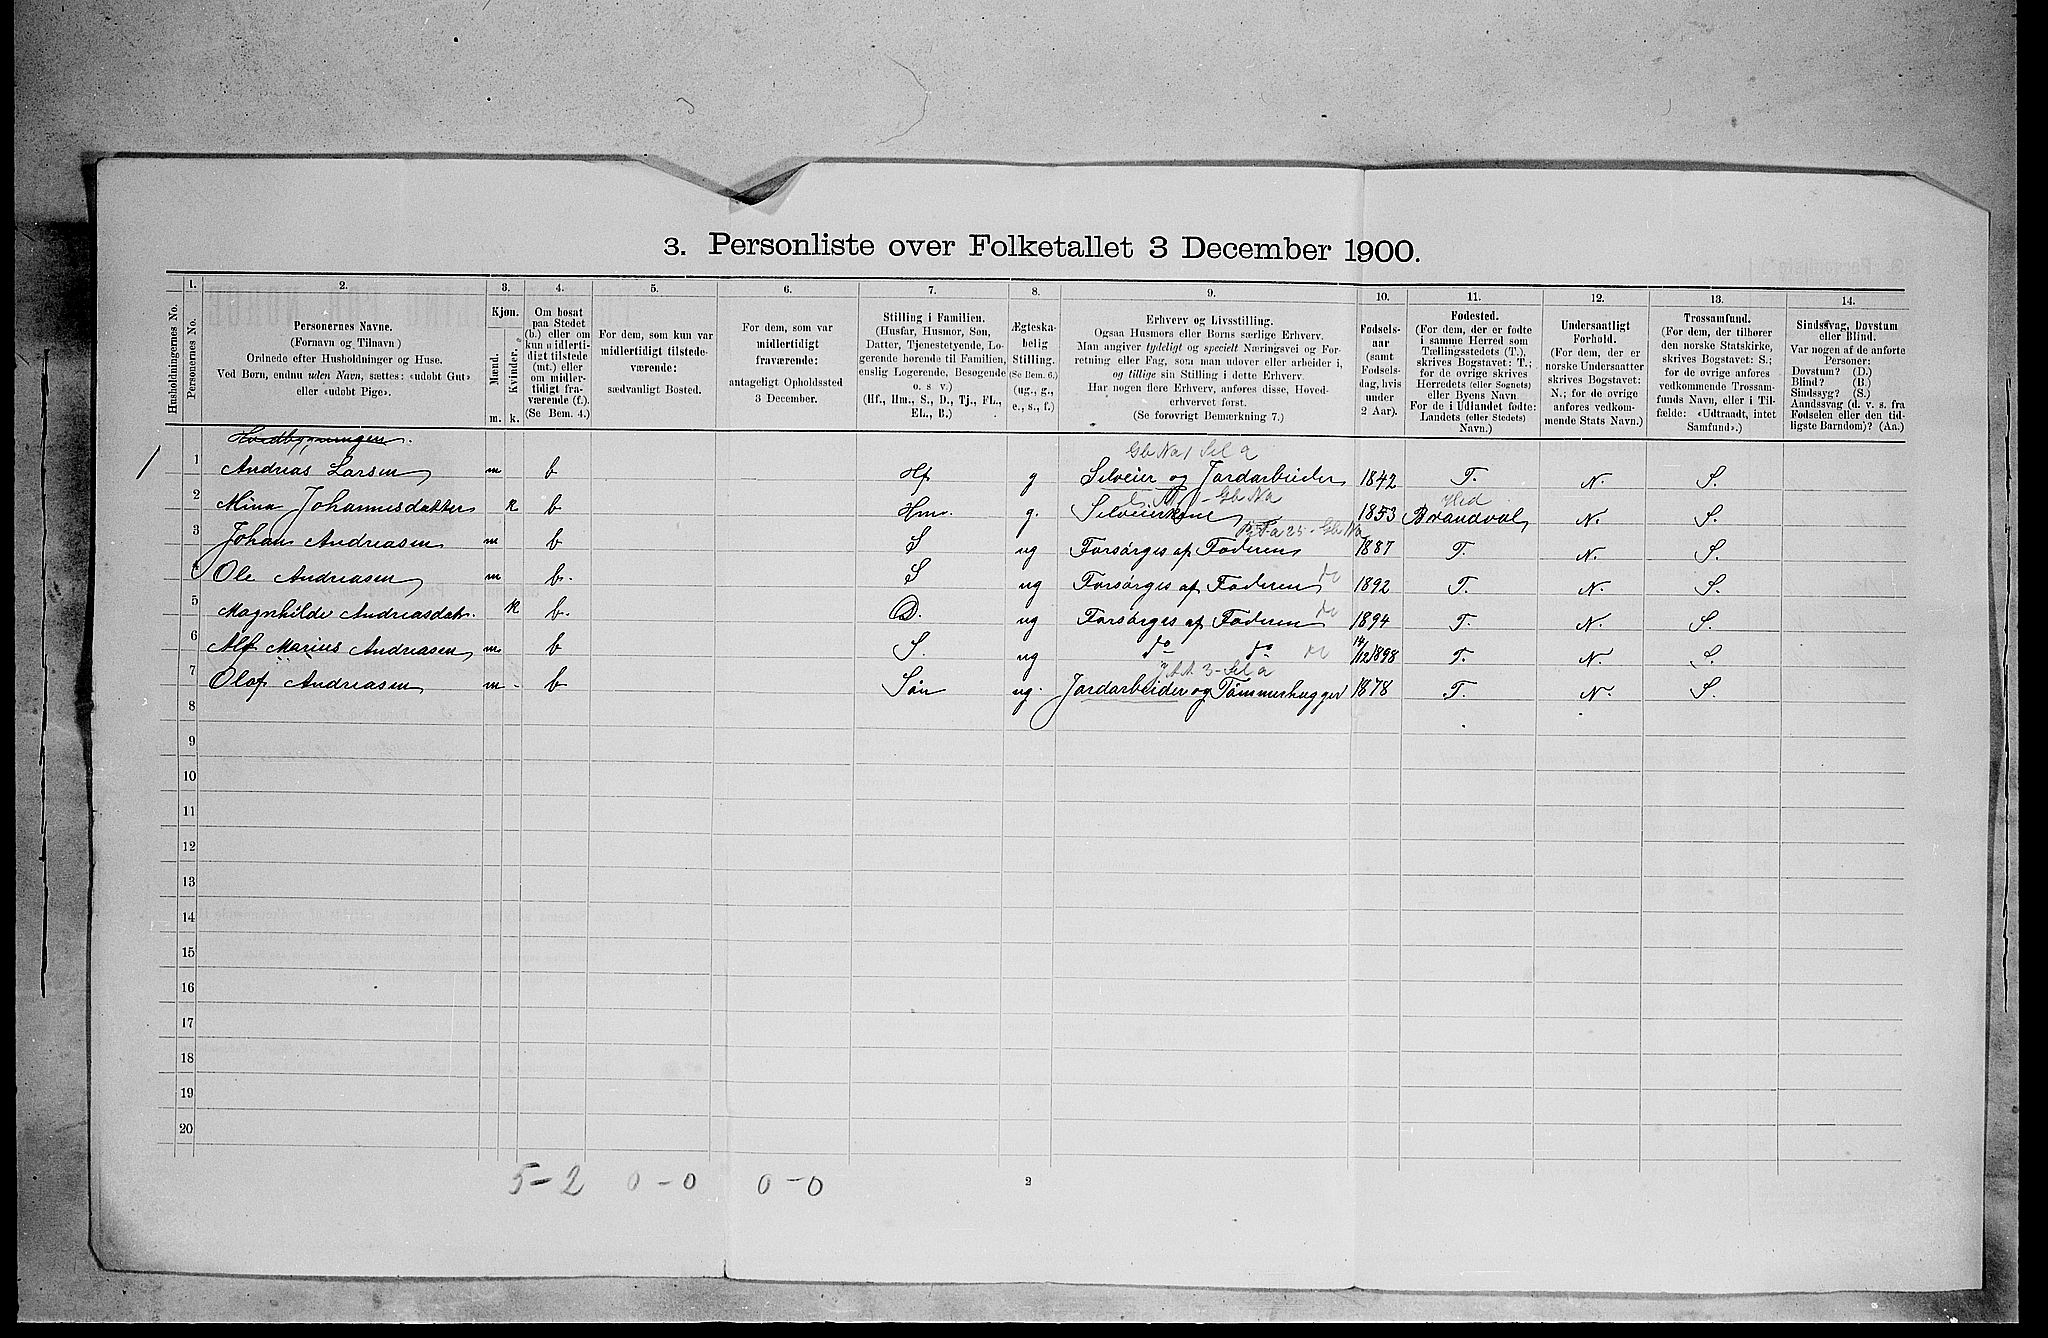 3. Personliste over Folketallet 3 December 1900.
Husholdningernes No.
1.
Personernes No.
2.
Personernes Navne.
(Fornavn og Tilnavn)
Ordnede efter Husholdninger og Huse.
Ved Børn, endnu uden Navn, sættes: «udøbt Gut»
eller «udøbt Pige».
3.
Kjøn.
Mænd.
Kvinder.
m.
k.
4.
Om bosat
paa Stedet
(b.) eller om
kun midlerti-
digt tilstede
(mt.) eller
om midler-
tidigt fra-
værende (f.).
(Se Bem. 4.)
5.
For dem, som kun var
midlertidigt tilstede-
værende:
sædvanligt Bosted.
6.
For dem, som var
midlertidigt
fraværende:
antageligt Opholdssted
3 December.
7.
Stilling i Familien.
(Husfar, Husmor, Søn,
Datter, Tjenestetyende, Lo-
gerende hørende til Familien,
enslig Logerende, Besøgende
o. s. v.)
(Hf., Hm., S., D., Tj., FL.,
EL., B.)
8.
Ægteska-
belig
Stilling.
(Se Bem. 6.)
(ug., g.,
e., s., f.)
9.
Erhverv og Livsstilling.
Ogsaa Husmors eller Børns særlige Erhverv.
Man angiver tydeligt og specielt Næringsvei og For-
retning eller Fag, som man udøver eller arbeider i,
og tillige sin Stilling i dette Erhverv.
Har nogen flere Erhverv, anføres disse, Hoved-
erhvervet først.
(Se forøvrigt Bemerkning 7.)
10.
Fødsels-
aar
(samt
Fødsels-
dag, hvis
under
2 Aar).
11.
Fødested.
(For dem, der er fødte
i samme Herred som
Tællingsstedets (T.),
skrives Bogstavet: T.;
for de øvrige skrives
Herredets (eller Sognets)
eller Byens Navn
For de i Udlandet fødte:
Landets (eller Stedets)
Navn.)
12.
Undersaatligt
Forhold.
(For dem, der er
norske Undersaatter
skrives Bogstavet:
N.; for de øvrige
anføres vedkom-
mende Stats Navn.)
13.
Trossamfund.
(For dem, der tilhører
den norske Statskirke,
skrives Bogstavet: S.;
for de øvrige anføres
vedkommende Trossam-
funds Navn, eller i Til-
fælde: «Udtraadt, intet
Samfund».)
14.
Sindssvag, Døvstum
eller Blind.
Var nogen af de anførte
Personer:
Døvstum? (D.)
Blind? (B.)
Sindssyg? (S.)
Aandssvag (d. v. s. fra
Fødselen eller den tid-
ligste Barndom)? (Aa.)
Hovedbygningen.
1 1 Andreas Larsen m b Hf g Selveier og Jordarbeider 1842 T. N. S.
2 Mina Johannesdatter k b Hm. g. Selveierkone 1853 Brandval N. S.
Hed
3 Johan Andreasen m b S ug Forsørges af Faderen 1887 T. N. S.
4 Ole Andreasen m b. S ug Forsørges af Faderen do 1892 T. N. S.
5 Magnhilde Andreasdat. k b. D. ug Forsørges af Faderen do 1894 T. N. S.
6 Alf Marius Andreasen m. b S. ug do do do 14/12 1898 T. N. S.
7 Olaf Andreasen m. b Søn ug. Jordarbeider og Tømmerhugger 1878 T. N. S.
8
9
10
11
12
13
14
15
16
17
18
19
20
5-2 0-0 0-0
2